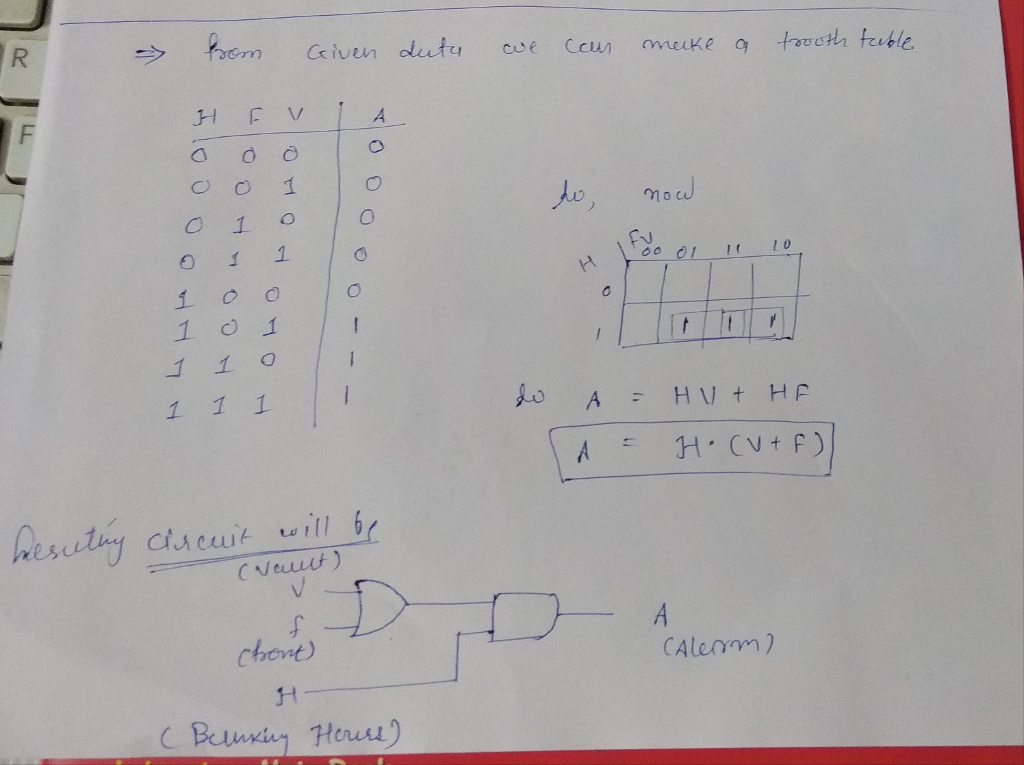 R
F
⇒ from Given duty we can make a trooth table
H F V | A
0 0 0 | 0
0 0 1 | 0
0 1 0 | 0
0 1 1 | 0
1 0 0 | 0
1 0 1 | 1
1 1 0 | 1
1 1 1 | 1
So, now
H \ FV 00 01 11 10
0
1 1 1 1
So A = HV + HF
A = H·(V+F)
Resulting circuit will be
(Vault)
V
f
(front)
A
(Alarm)
H
(Banking Hours)